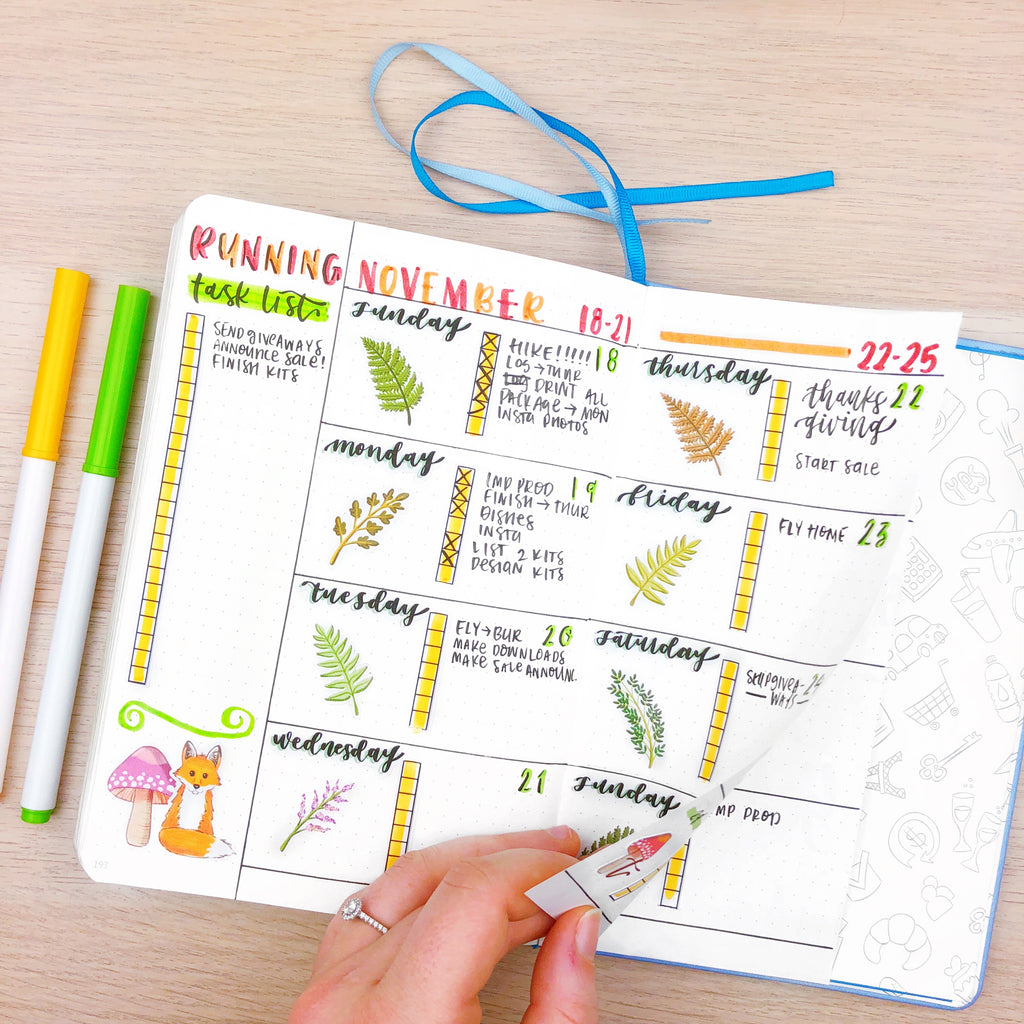 RUNNING
task list
SEND GIVEAWAYS
ANNOUNCE SALE!
FINISH KITS
193
NOVEMBER 18-21
Sunday
18
HIKE!!!!!
LOS→THUR
PRINT ALL
PACKAGE → MON
INSTA PHOTOS
monday
19
IMP PROD
FINISH → THUR
DISHES
INSTA
LIST 2 KITS
DESIGN KITS
tuesday
20
FLY→BUR
MAKE DOWNLOADS
MAKE SALE ANNOUN.
wednesday
21
22-25
thursday
22
thanks
giving
START SALE
friday
FLY HOME 23
Saturday
SHIP GIVEA-
WAYS
Sunday
MP PROD
YES